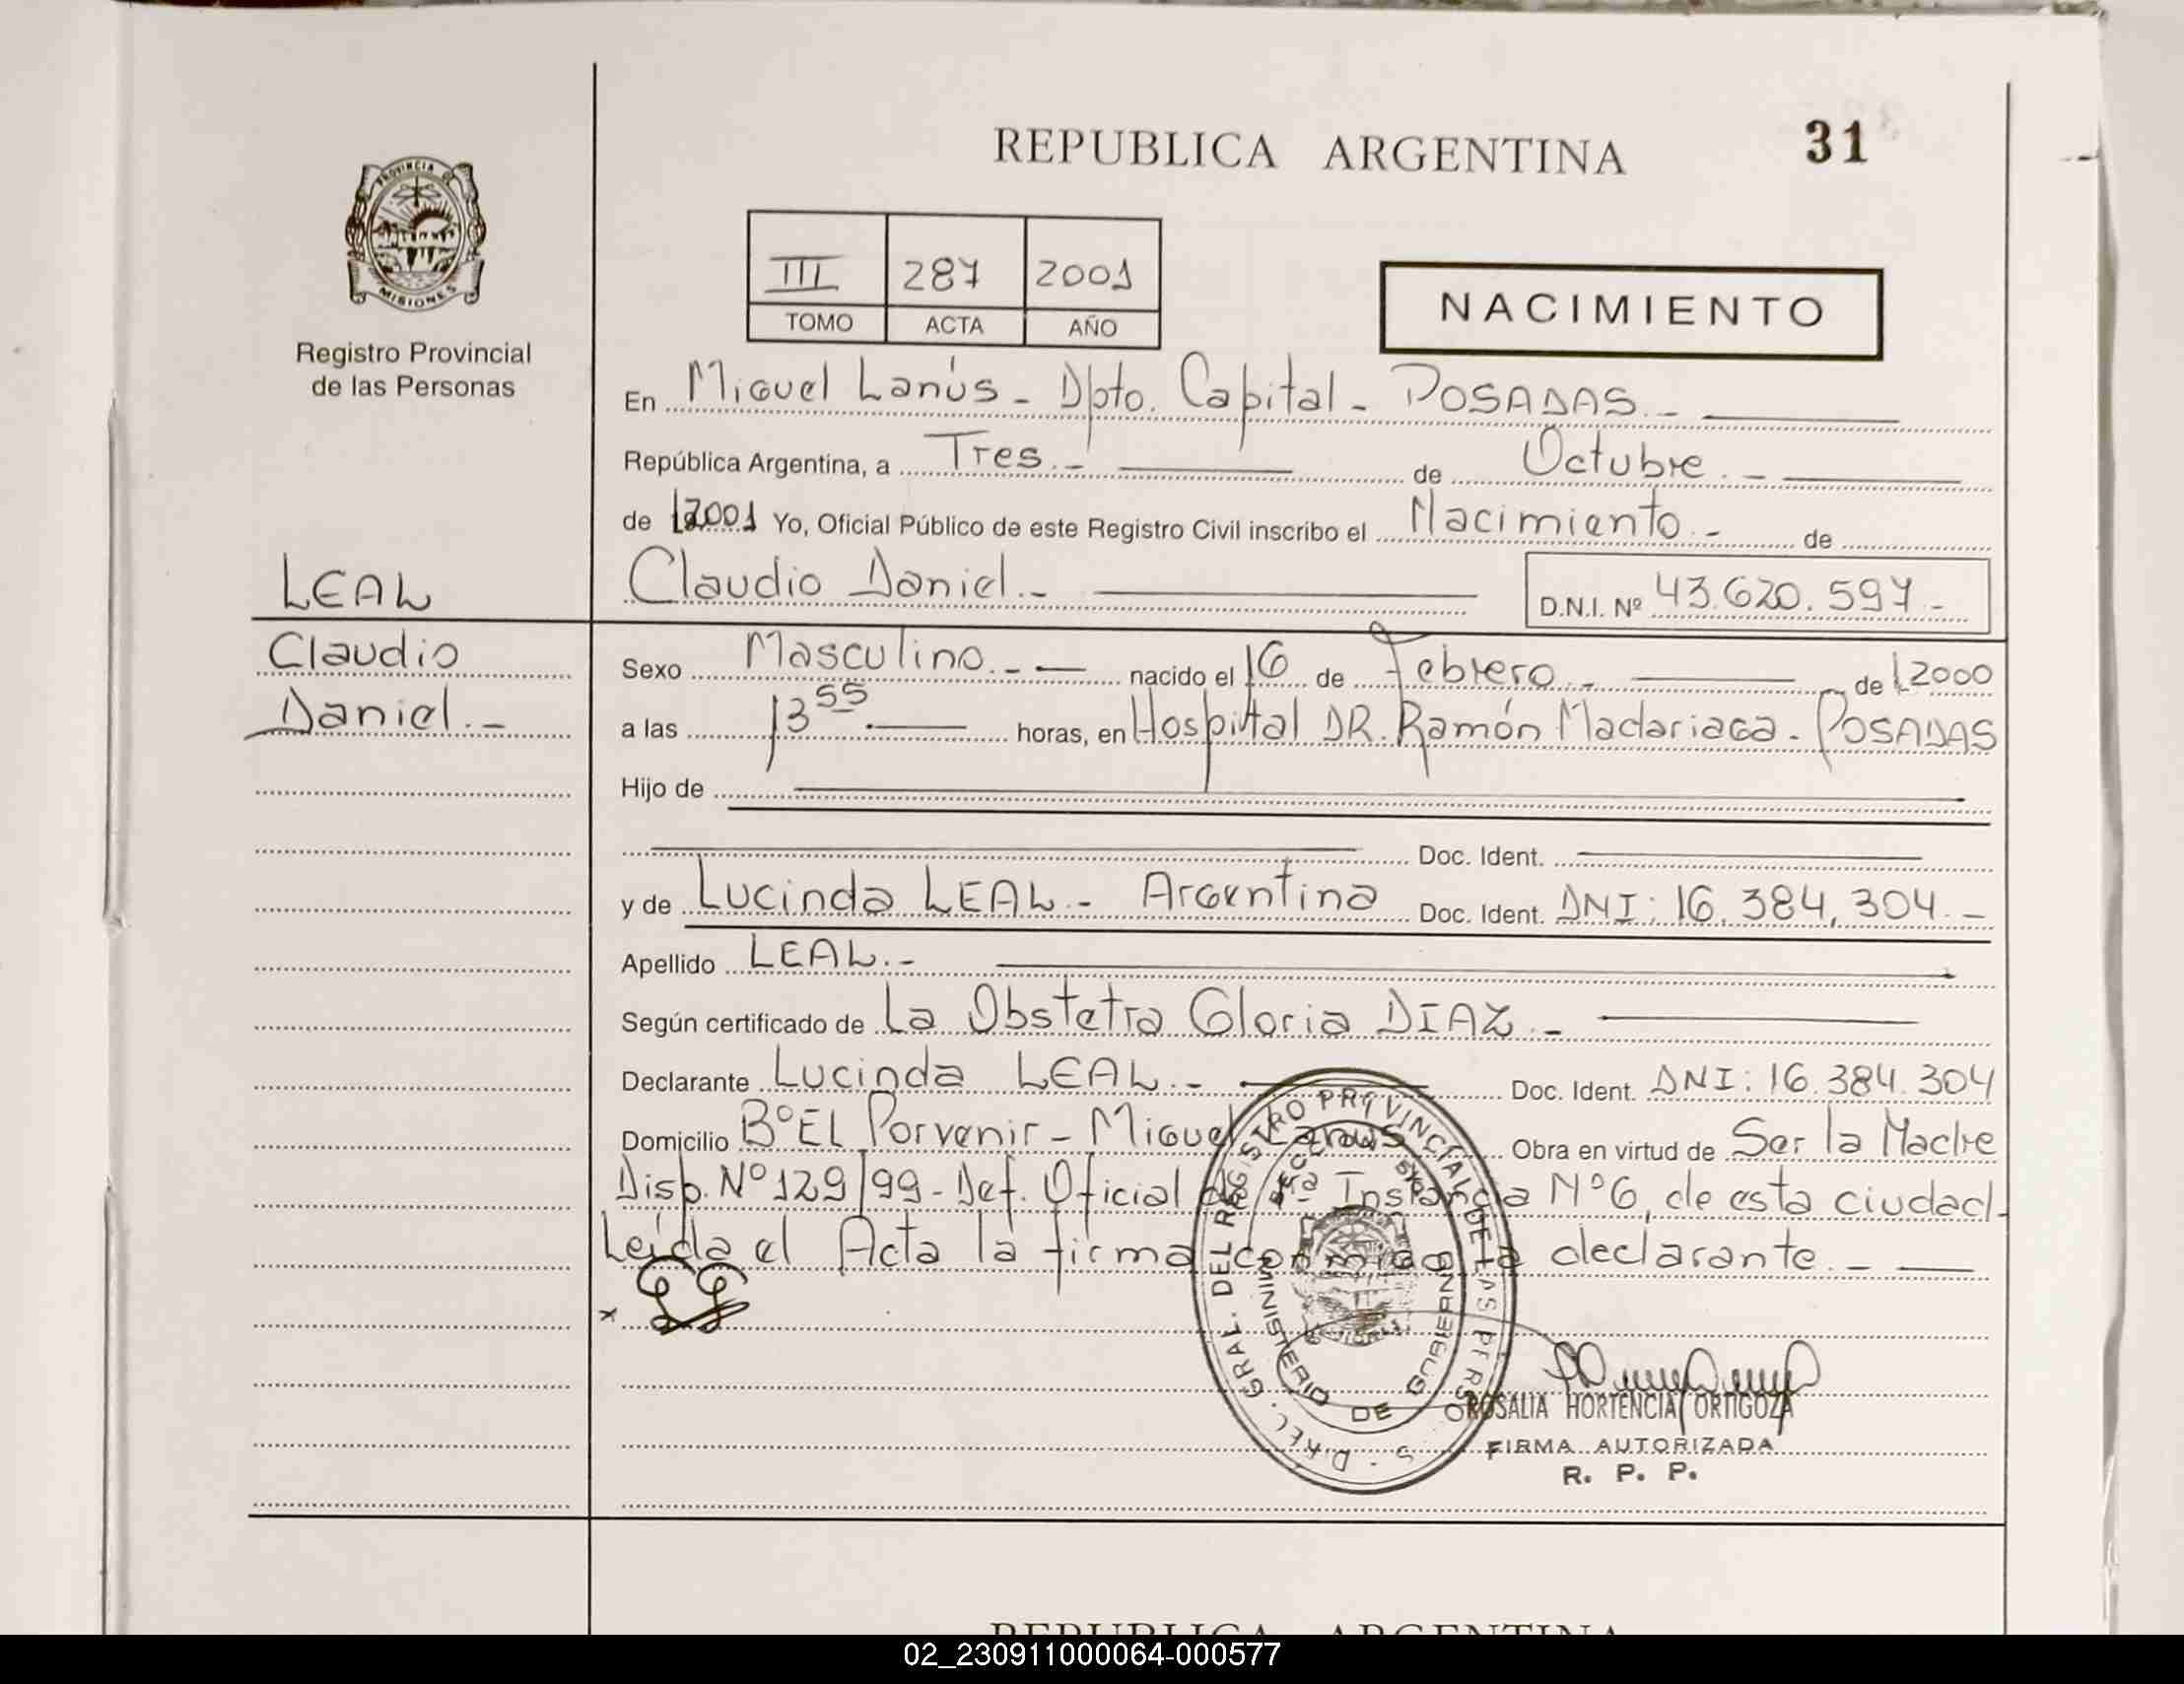 REPUBLICA ARGENTINA
31
PROVINCIA DE
MISIONES
Registro Provincial
de las Personas
III 287 2001
TOMO ACTA AÑO
NACIMIENTO
En Miguel Lanús - Dpto. Capital - POSADAS.-
República Argentina, a Tres.- de Octubre.-
de 2001 Yo, Oficial Público de este Registro Civil inscribo el Nacimiento.- de
Claudio Daniel.- D.N.I. Nº 43.620.597-
LEAL
Claudio
Daniel.-
Sexo Masculino.- nacido el 16 de Febrero.- de 2000
a las 13 55. horas, en Hospital DR. Ramón Madariaga - POSADAS
Hijo de
Doc. Ident.
y de Lucinda LEAL - Argentina Doc. Ident. DNI: 16.384.304.-
Apellido LEAL.-
Según certificado de La Obstetra Gloria DIAZ.-
Declarante Lucinda LEAL.- Doc. Ident. DNI: 16.384.304
Domicilio Bº EL Porvenir - Miguel Lanus Obra en virtud de Ser la Madre
Disp. Nº 129/99 - Def. Oficial de 1ra Instancia Nº6, de esta ciudad-
Leida el Acta la firma conmigo la declarante.-
x
DIREC. GRAL. DEL REGISTRO PROVINCIAL DE LAS PERSONAS
MINISTERIO DE GOBIERNO
ROSALIA HORTENCIA ORTIGOZA
FIRMA AUTORIZADA
R. P. P.
REPUBLICA ARGENTINA
02_230911000064-000577